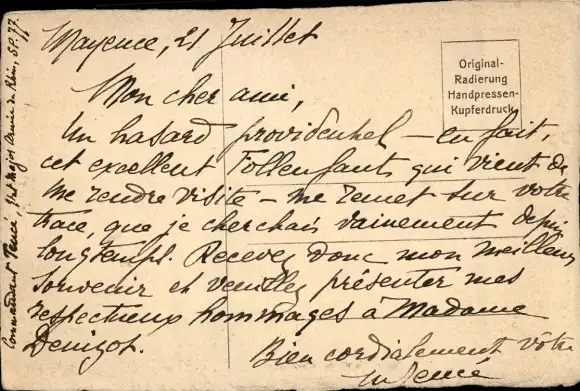 Mayence, 21 Juillet
Original-
Radierung
Handpressen-
Kupferdruck
Mon cher ami,
Un hasard providentiel – en fait,
cet excellent Tollenfants qui vient de
me rendre visite – me remet sur votre
trace, que je cherchais vainement depuis
longtemps. Recevez donc mon meilleur
souvenir et veuillez présenter mes
respectueux hommages à Madame
Denizot.
Bien cordialement vôtre
Commandant Pencé, Etat Major Armée du Rhin, S.P. 77